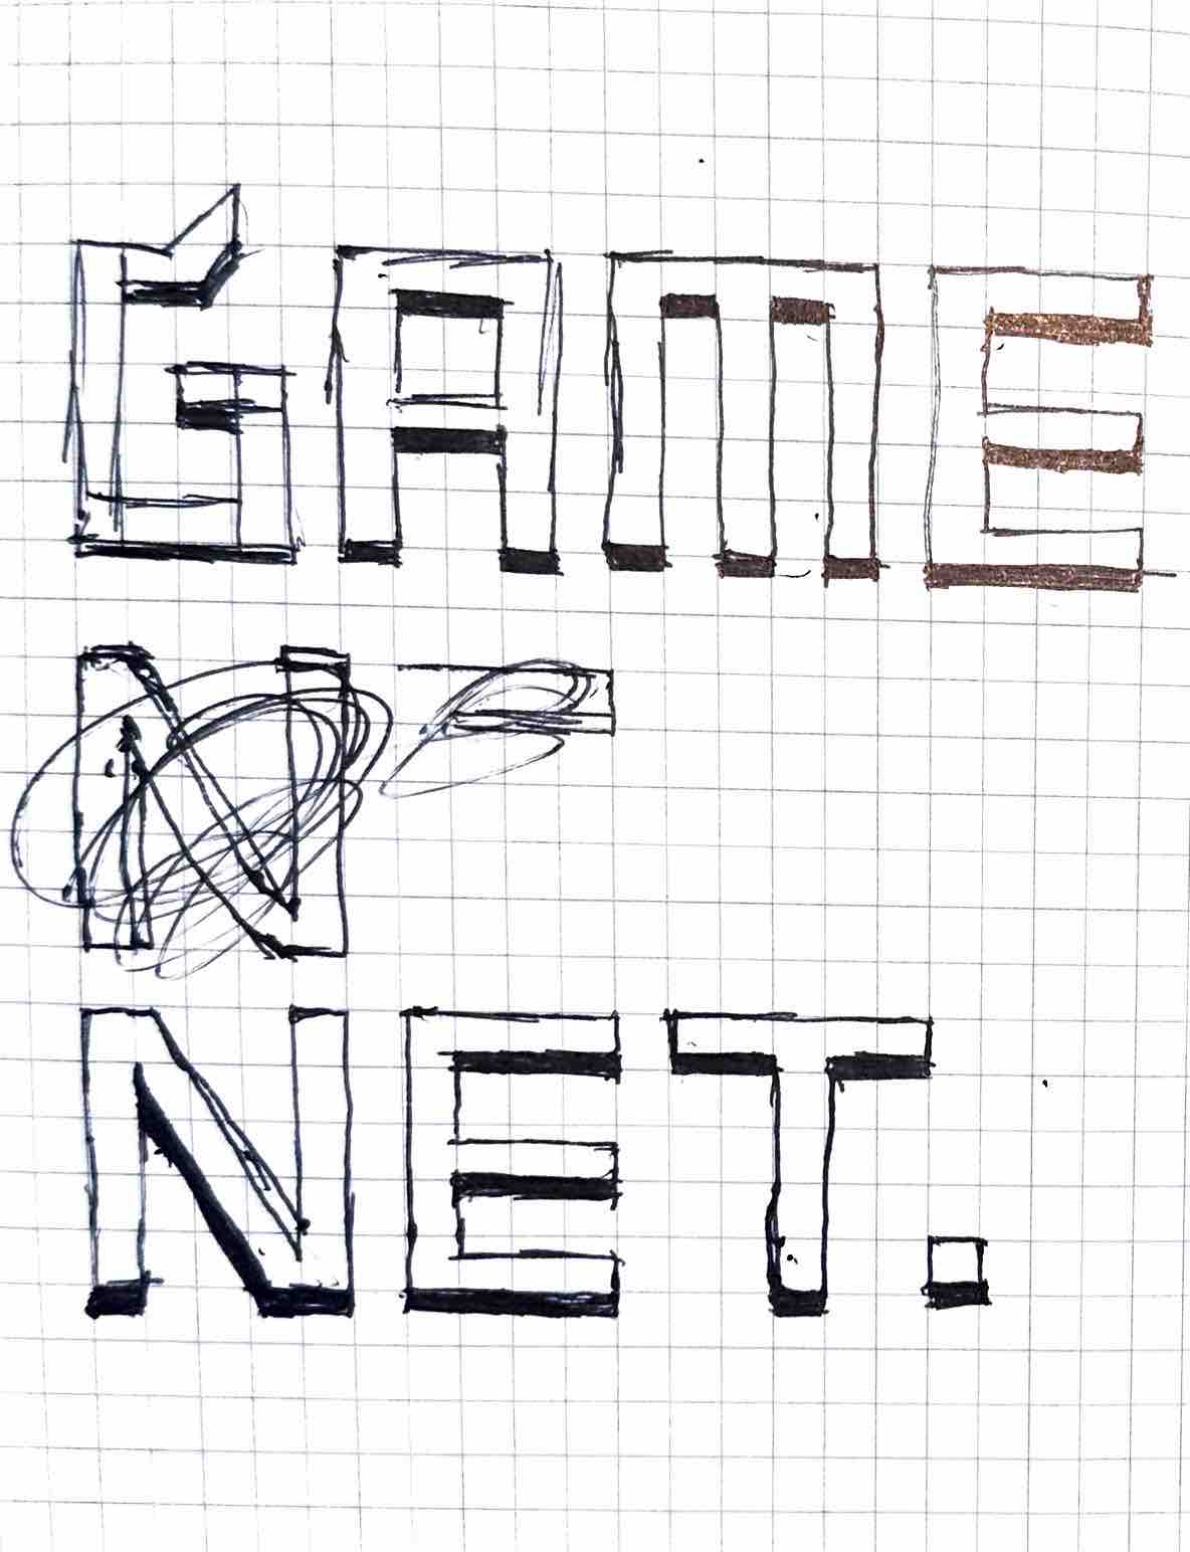 GAME
NET.